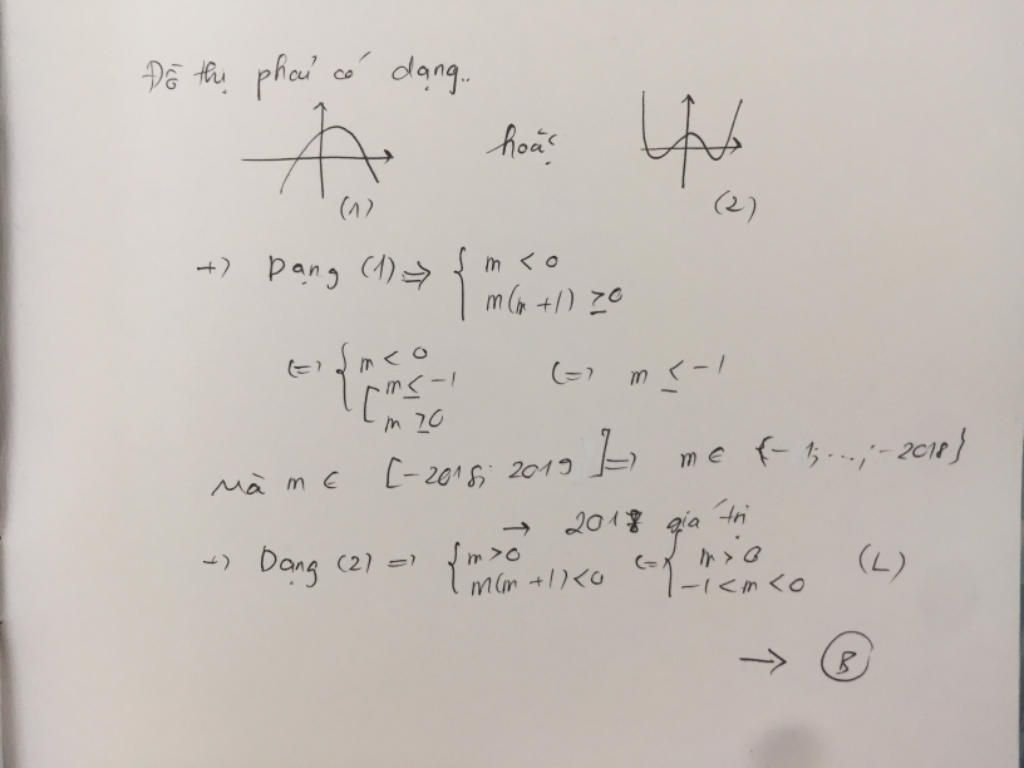 Đồ thị phải có dạng..
hoặc
(1) (2)
+) Dạng (1) => { m < 0
m(m+1) ≥ 0
<=> { m < 0
[ m ≤ -1
m ≥ 0
<=> m ≤ -1
Mà m ∈ [-2018; 2019] => m ∈ {-1;...;-2018}
→ 2018 giá trị
+) Dạng (2) => { m > 0
m(m+1) < 0
<=> { m > 0
-1 < m < 0
(L)
→ B